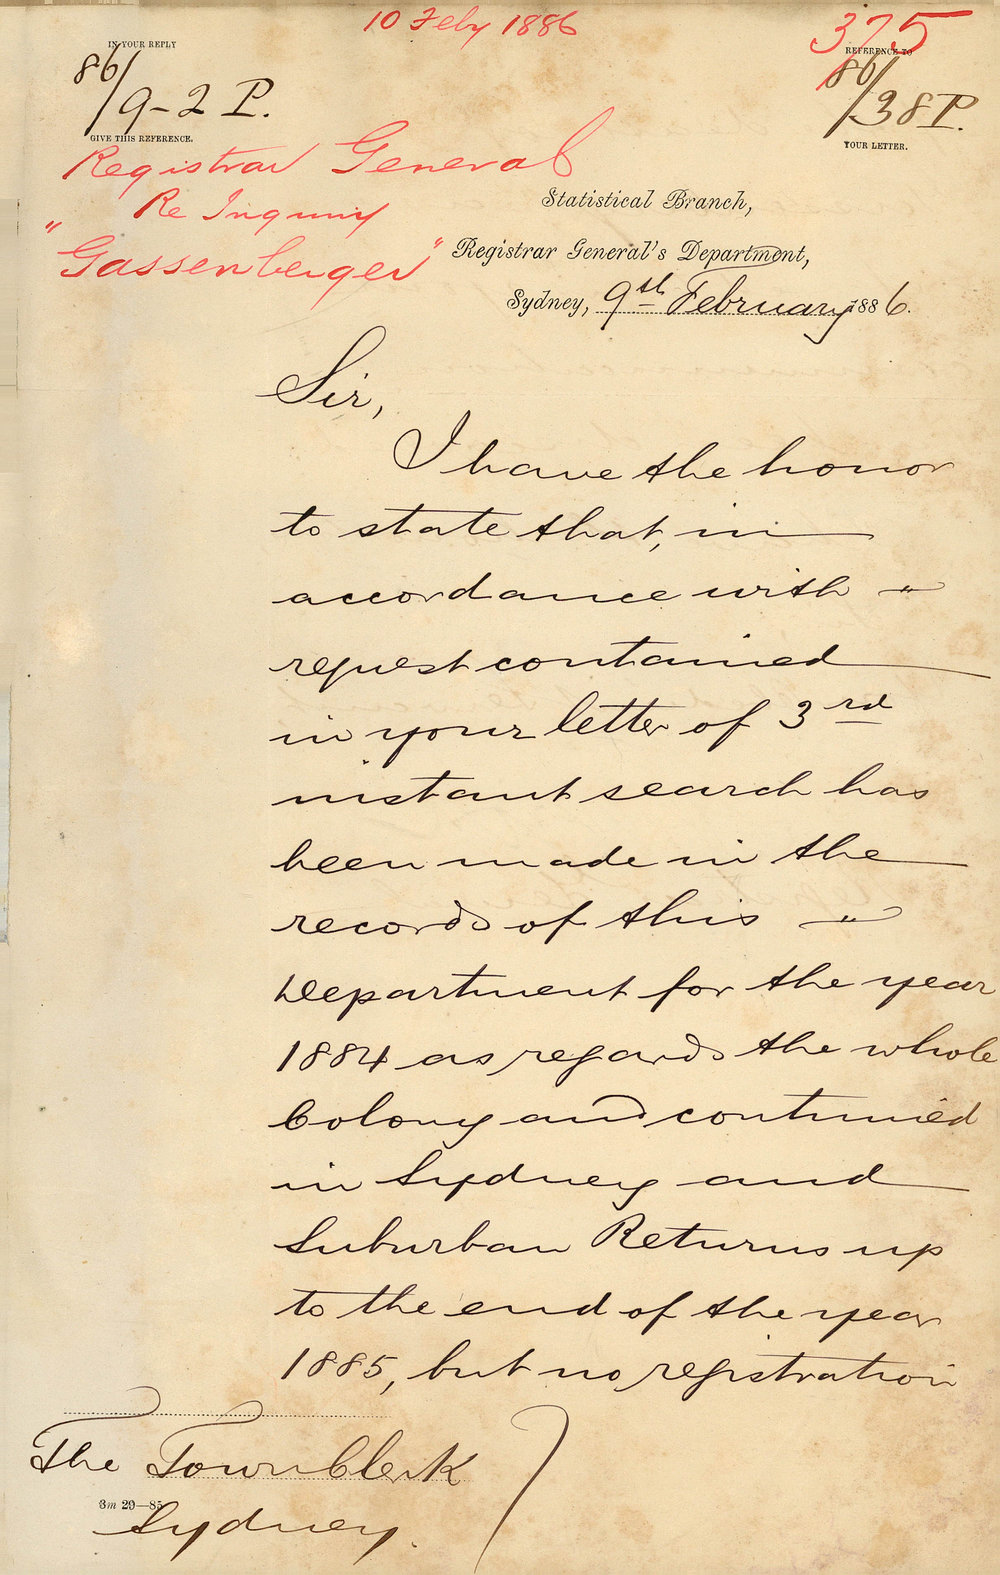 10 Feby 1886
375
IN YOUR REPLY
86/9-2 P.
GIVE THIS REFERENCE.
REFERENCE TO
86/38 P.
YOUR LETTER.
Registrar General
Re Inquiry
"Gassenberger"
Statistical Branch,
Registrar General's Department,
Sydney, 9th February 1886.
Sir,
I have the honor
to state that, in
accordance with "
request contained
in your letter of 3rd
instant search has
been made in the
records of this "
Department for the year
1884 as regards the whole
Colony and continued
in Sydney and
Suburban Returns up
to the end of the year
1885, but no registration
The Town Clerk
3m 29—85
Sydney.